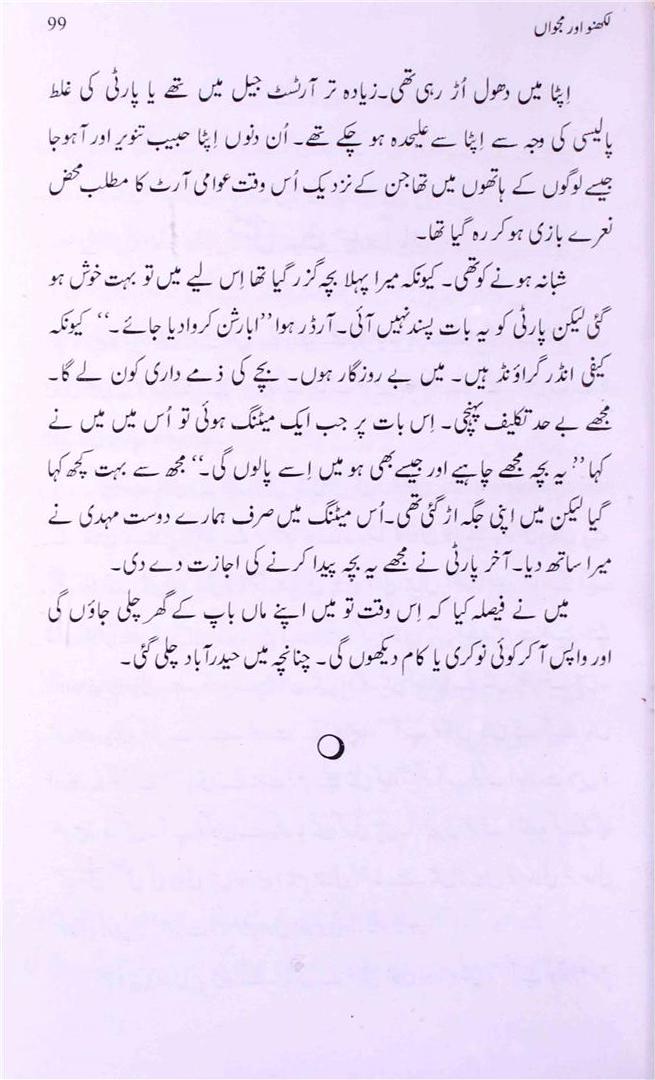 لکھنو اور مجواں
99
اِپٹا میں دھول اُڑ رہی تھی۔ زیادہ تر آرٹسٹ جیل میں تھے یا پارٹی کی غلط
پالیسی کی وجہ سے اِپٹا سے علیحدہ ہو چکے تھے۔ اُن دنوں اِپٹا حبیب تنویر اور آہوجا
جیسے لوگوں کے ہاتھوں میں تھا جن کے نزدیک اُس وقت عوامی آرٹ کا مطلب محض
نعرے بازی ہو کر رہ گیا تھا۔
شبانہ ہونے کو تھی۔ کیونکہ میرا پہلا بچہ گزر گیا تھا اِس لیے میں تو بہت خوش ہو
گئی لیکن پارٹی کو یہ بات پسند نہیں آئی۔ آرڈر ہوا ”ابارشن کروا دیا جائے۔“ کیونکہ
کیفی انڈر گراؤنڈ ہیں۔ میں بے روزگار ہوں۔ بچے کی ذمے داری کون لے گا۔
مجھے بے حد تکلیف پہنچی۔ اِس بات پر جب ایک میٹنگ ہوئی تو اُس میں میں نے
کہا ”یہ بچہ مجھے چاہیے اور جیسے بھی ہو میں اِسے پالوں گی۔“ مجھ سے بہت کچھ کہا
گیا لیکن میں اپنی جگہ اڑ گئی تھی۔ اُس میٹنگ میں صرف ہمارے دوست مہدی نے
میرا ساتھ دیا۔ آخر پارٹی نے مجھے یہ بچہ پیدا کرنے کی اجازت دے دی۔
میں نے فیصلہ کیا کہ اِس وقت تو میں اپنے ماں باپ کے گھر چلی جاؤں گی
اور واپس آ کر کوئی نوکری یا کام دیکھوں گی۔ چنانچہ میں حیدرآباد چلی گئی۔